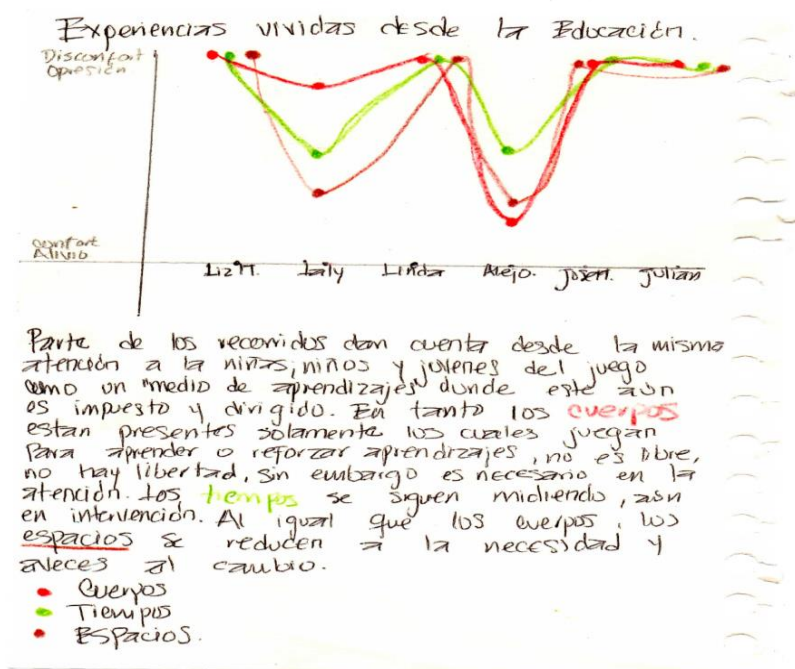 Experiencias vividas desde la Educación.
Disconfort
Opresión
Confort
Alivio
Liz M. Laily Linda Alejo. JoséM. Julián
Parte de los recorridos dan cuenta desde la misma
atención a la niñas, niños y jóvenes del juego
como un "medio de aprendizajes" dunde este aún
es impuesto y dirigido. En tanto los cuerpos
estan presentes solamente los cuales juegan
Para aprender o reforzar aprendizajes, no es libre,
no hay libertad, sin embargo es necesario en la
atención. Los tiempos se siguen midiendo, aún
en intervención. Al igual que los cuerpos, los
espacios se reducen a la necesidad y
aveces al cambio.
Cuerpos
Tiempos
Espacios.